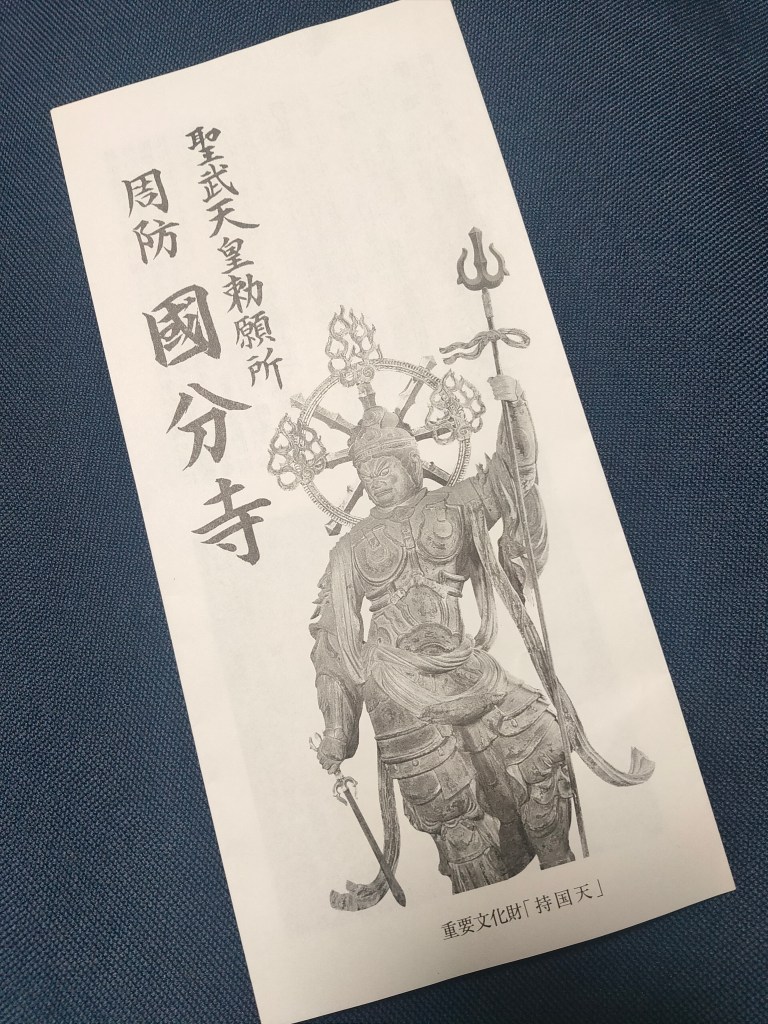 聖武天皇勅願所
周防 國分寺
重要文化財「持国天」